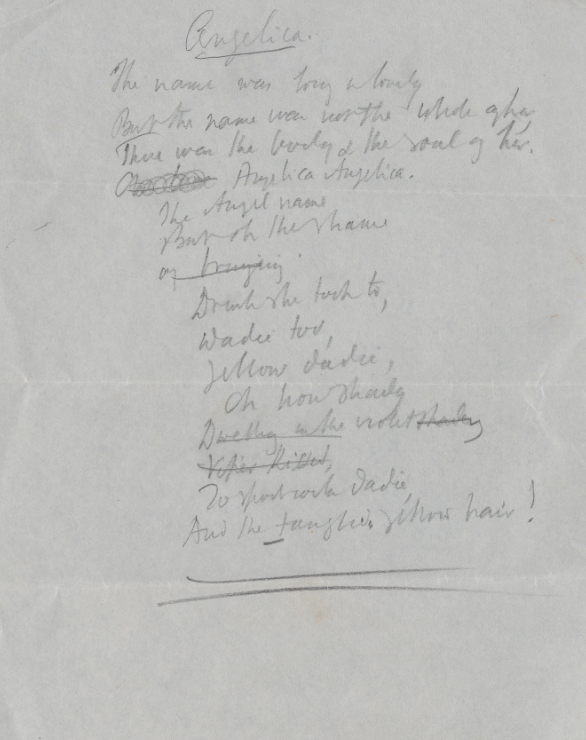 Angelica.
The name was long & lovely
But the name was not the whole of her
There was the body & the soul of her.
Angelica Angelica.
The Angel name
But oh the shame
of bringing
Drink she took to,
Wadie too,
Yellow dadie,
Oh how shady
Dwelling in the violet shadey
To sport with dadie,
And the tangled yellow hair!